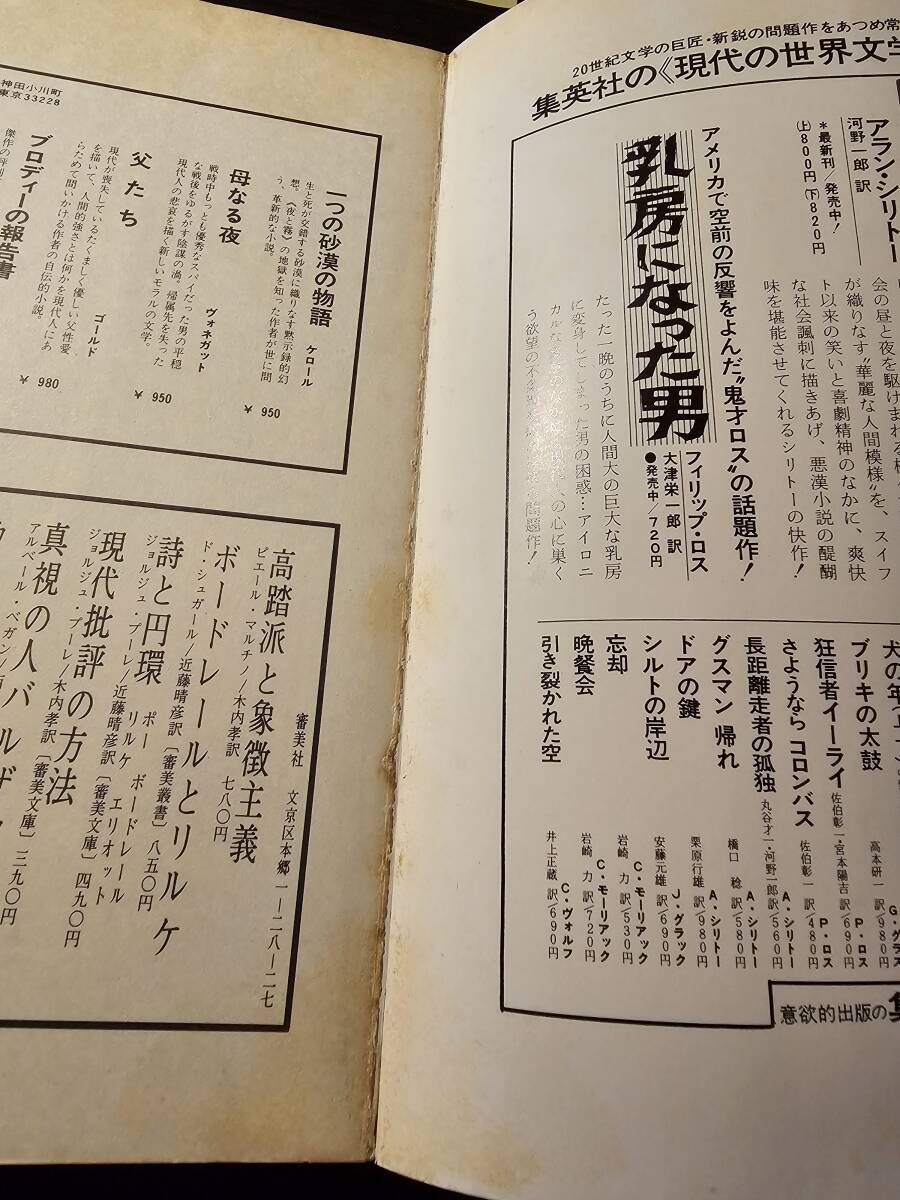 20世紀文学の巨匠・新鋭の問題作をあつめ常
集英社の《現代の世界文学
アラン・シリトー
河野一郎 訳
*最新刊/発売中!
(上)800円 (下)820円
会の昼と夜を駆けまわる
が織りなす“華麗な人間模様”を、スイフ
ト以来の笑いと喜劇精神のなかに、爽快
な社会諷刺に描きあげ、悪漢小説の醍醐
味を堪能させてくれるシリトーの快作!
アメリカで空前の反響をよんだ“鬼才ロス”の話題作!
乳房になった男
フィリップ・ロス
大津栄一郎 訳
●発売中/720円
たった一晩のうちに人間大の巨大な乳房
に変身してしまった男の困惑…アイロニ
カルな
の心に巣く
う欲望の不条理
問題作!
犬の年
G・グラス
ブリキの太鼓
高本研一 訳/980円
狂信者イーライ
P・ロス
佐伯彰一・宮本陽吉 訳/690円
さようなら コロンバス
P・ロス
佐伯彰一 訳/480円
長距離走者の孤独
A・シリトー
丸谷才一・河野一郎 訳/560円
グスマン 帰れ
A・シリトー
橋口 稔 訳/580円
ドアの鍵
A・シリトー
栗原行雄 訳/980円
シルトの岸辺
J・グラック
安藤元雄 訳/690円
忘却
C・モーリアック
岩崎 力 訳/530円
晩餐会
C・モーリアック
岩崎 力 訳/720円
引き裂かれた空
C・ヴォルフ
井上正蔵 訳/690円
意欲的出版の集
神田小川町
東京33228
一つの砂漠の物語
ケロール
生と死が交錯する砂漠に織りなす黙示録的幻
想。《夜と霧》の地獄を知った作者が世に問
う、革新的な小説。
¥ 950
母なる夜
ヴォネガット
戦時中もっとも優秀なスパイだった男の平穏
な戦後をゆるがす陰謀の渦。帰属先を失った
現代人の悲哀を描く新しいモラルの文学。
¥ 950
父たち
ゴールド
現代が喪失しているたくましく優しい父性愛
を描いて、人間的強さとは何かを現代人にあ
らためて問いかける作者の自伝的小説。
¥ 980
ブロディーの報告書
審美社 文京区本郷一―二八―二七
高踏派と象徴主義
ピエール・マルチノ/木内孝訳 七八〇円
ボードレールとリルケ
ド・シュガール/近藤晴彦訳〔審美叢書〕八五〇円
詩と円環 ポー ボードレール リルケ エリオット
ジョルジュ・プーレ/近藤晴彦訳〔審美文庫〕四九〇円
現代批評の方法
ジョルジュ・プーレ/木内孝訳〔審美文庫〕三九〇円
真視の人バルザ
アルベール・ベガン/